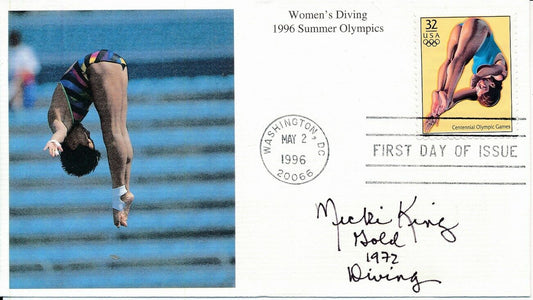 Women's Diving
1996 Summer Olympics
32
USA
Centennial Olympic Games
WASHINGTON, DC
MAY 2
1996
20066
FIRST DAY OF ISSUE
Micki King
Gold
1972
Diving